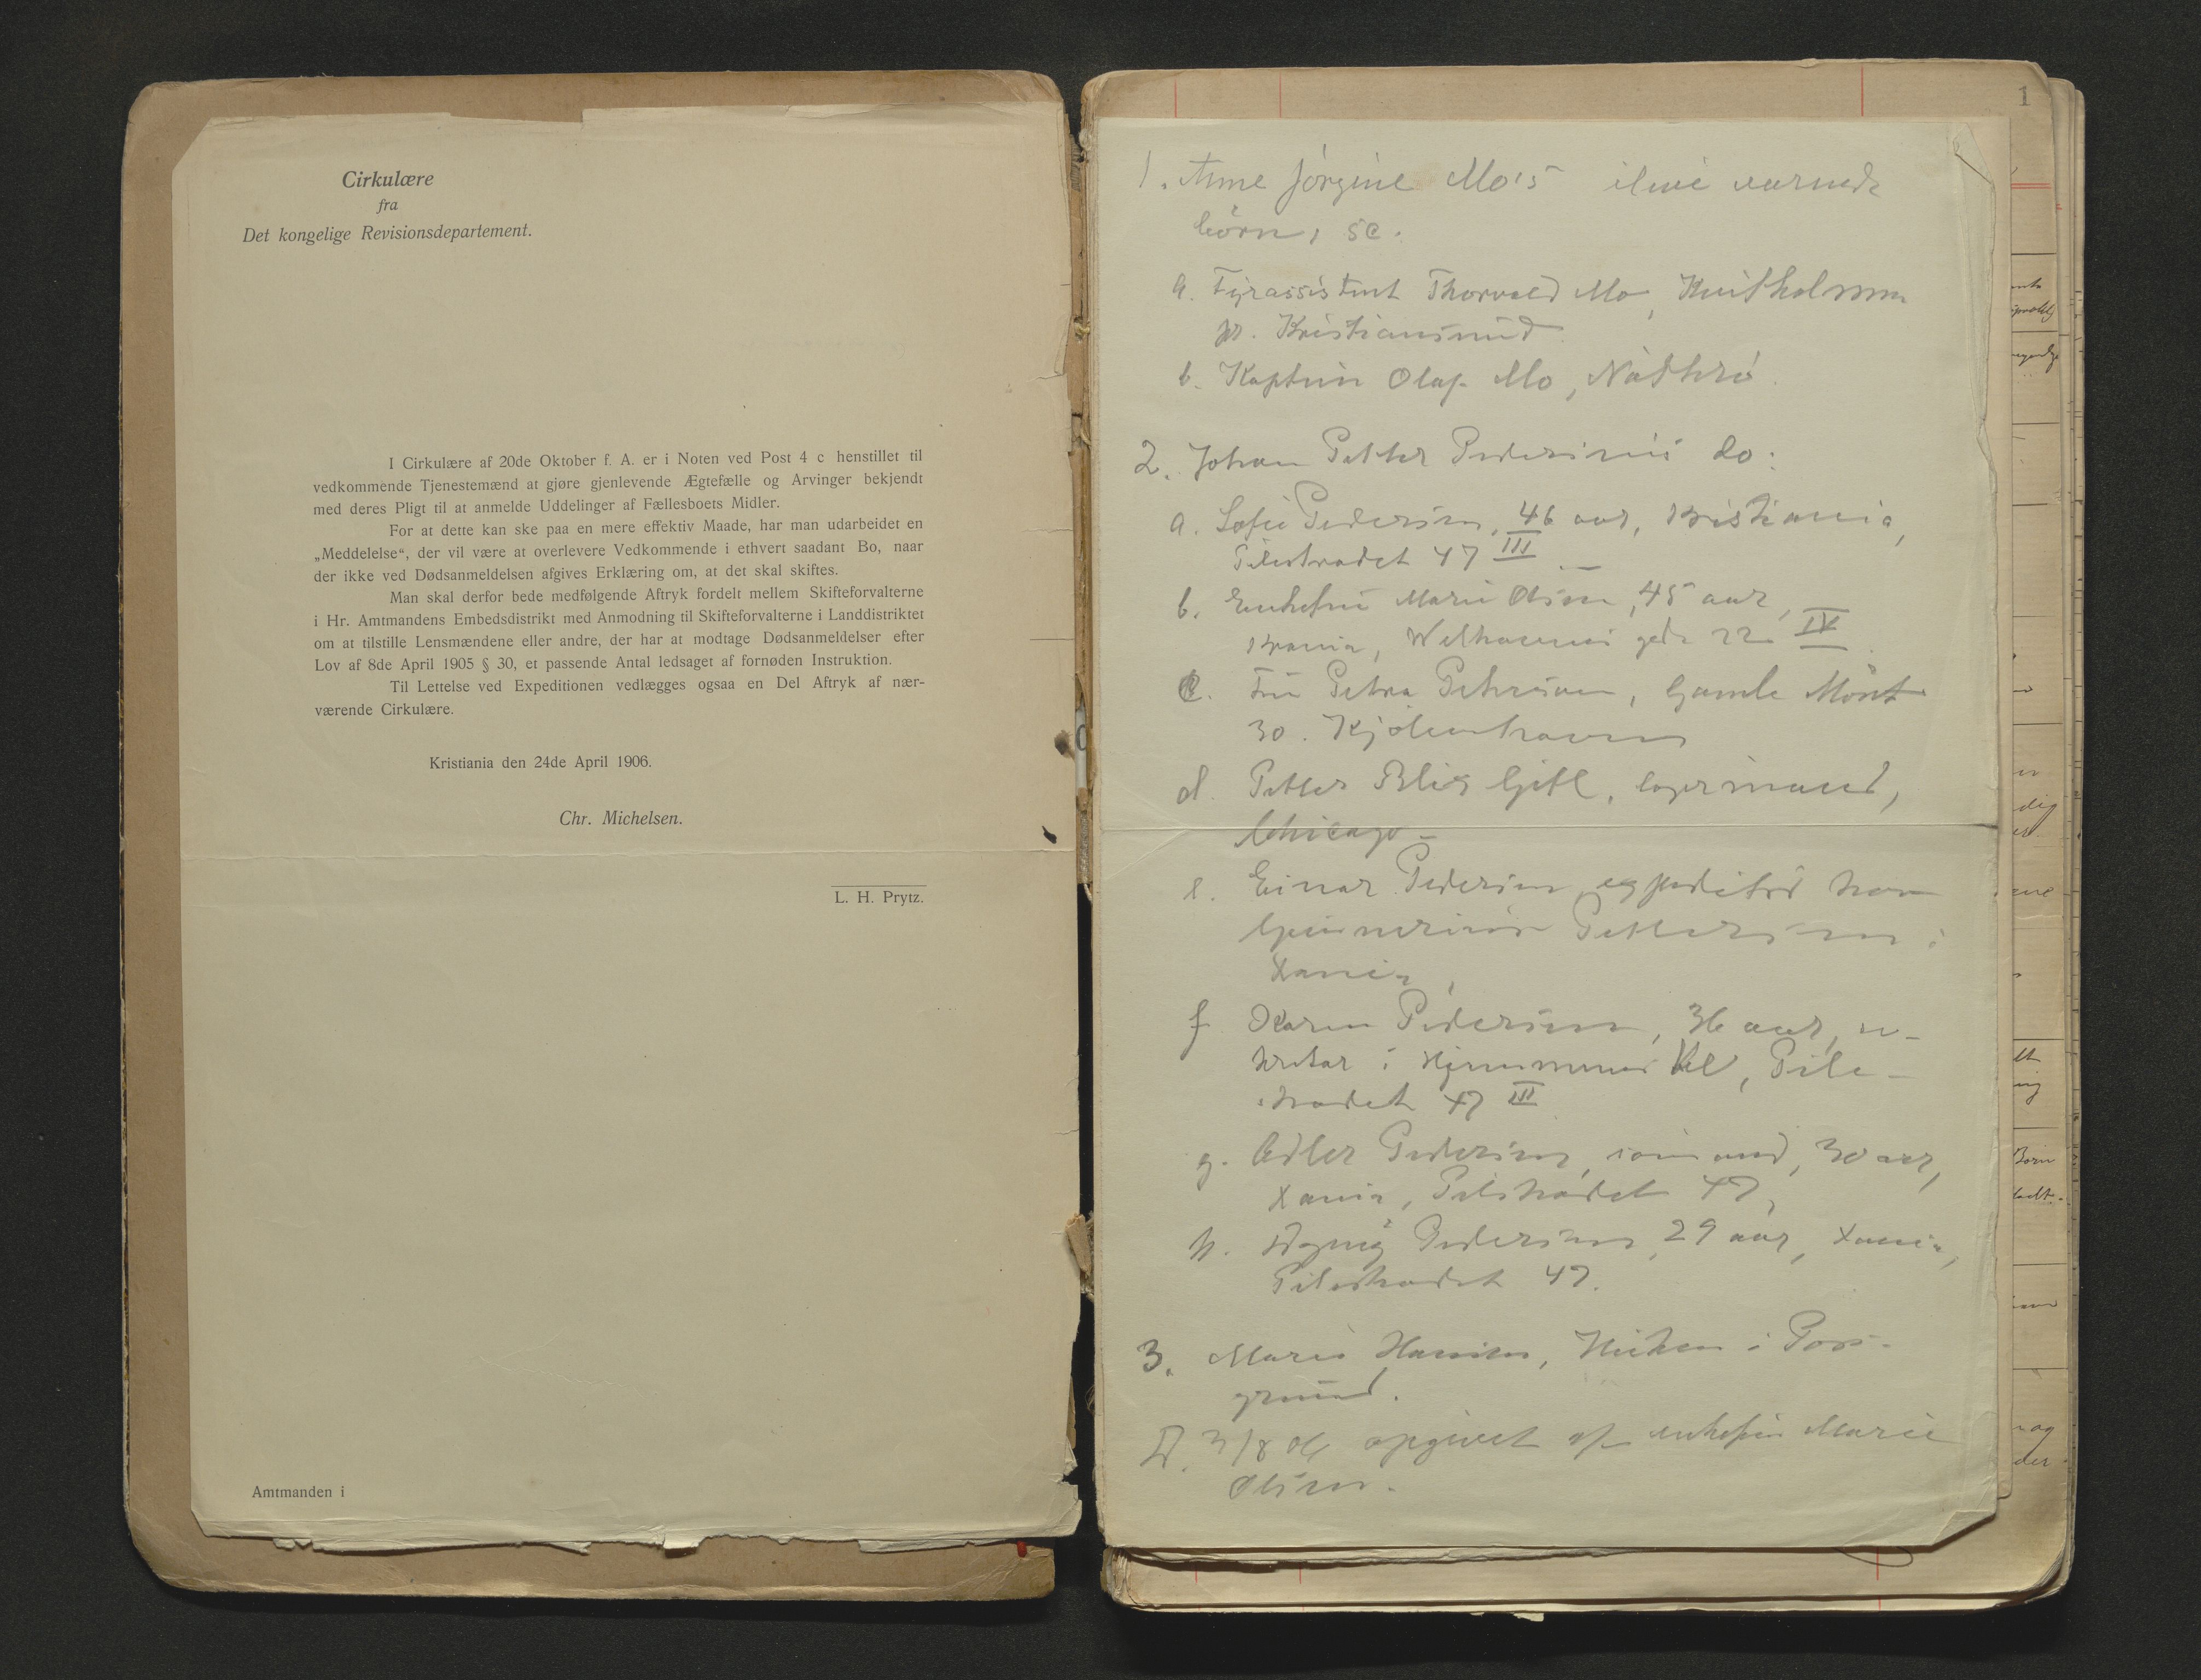 Cirkulære
fra
Det kongelige Revisionsdepartement.
I Cirkulære af 20de Oktober f. A. er i Noten ved Post 4 c henstillet til
vedkommende Tjenestemænd at gjøre gjenlevende Ægtefælle og Arvinger bekjendt
med deres Pligt til at anmelde Uddelinger af Fællesboets Midler.
For at dette kan ske paa en mere effektiv Maade, har man udarbeidet en
„Meddelelse“, der vil være at overlevere Vedkommende i ethvert saadant Bo, naar
der ikke ved Dødsanmeldelsen afgives Erklæring om, at det skal skiftes.
Man skal derfor bede medfølgende Aftryk fordelt mellem Skifteforvalterne
i Hr. Amtmandens Embedsdistrikt med Anmodning til Skifteforvalterne i Landdistriktet
om at tilstille Lensmændene eller andre, der har at modtage Dødsanmeldelser efter
Lov af 8de April 1905 § 30, et passende Antal ledsaget af fornøden Instruktion.
Til Lettelse ved Expeditionen vedlægges ogsaa en Del Aftryk af nær-
værende Cirkulære.
Kristiania den 24de April 1906.
Chr. Michelsen.
L. H. Prytz.
Amtmanden i
1
1. Anne Jörgine Mo's
börn, sc.
a. Fyrassistent Thorvald Mo, Kvitholmen
pr. Kristiansund
b. Kaptein Olaf Mo,
2. Johan Petter Pedersens do:
a. Sofie Pedersen, 46 aar, Kristiania,
Pilestrædet 47 III
b. Enkefru Marie Olsen, 45 aar,
Krania, Welhavens gade 22 IV
c. Fru Petra Petersen, Gamle Mönt
30. Kjöbenhavn
d. Petter
Chicago
e. Einar Pedersen, expeditör hos
Gunnerius Pettersen i
Xania,
f. Karen Pedersen, 36 aar,
i Hjemmenes Vel, Pile-
strædet 47 III
g. Adler Pedersen, sömand, 30 aar,
Xania, Pilestrædet 47,
h. Pedersen, 29 aar, Xania,
Pilestrædet 47.
3. Marie Hansen, i Pors-
grund.
3/8 opgivet af enkefru Marie
Olsen.